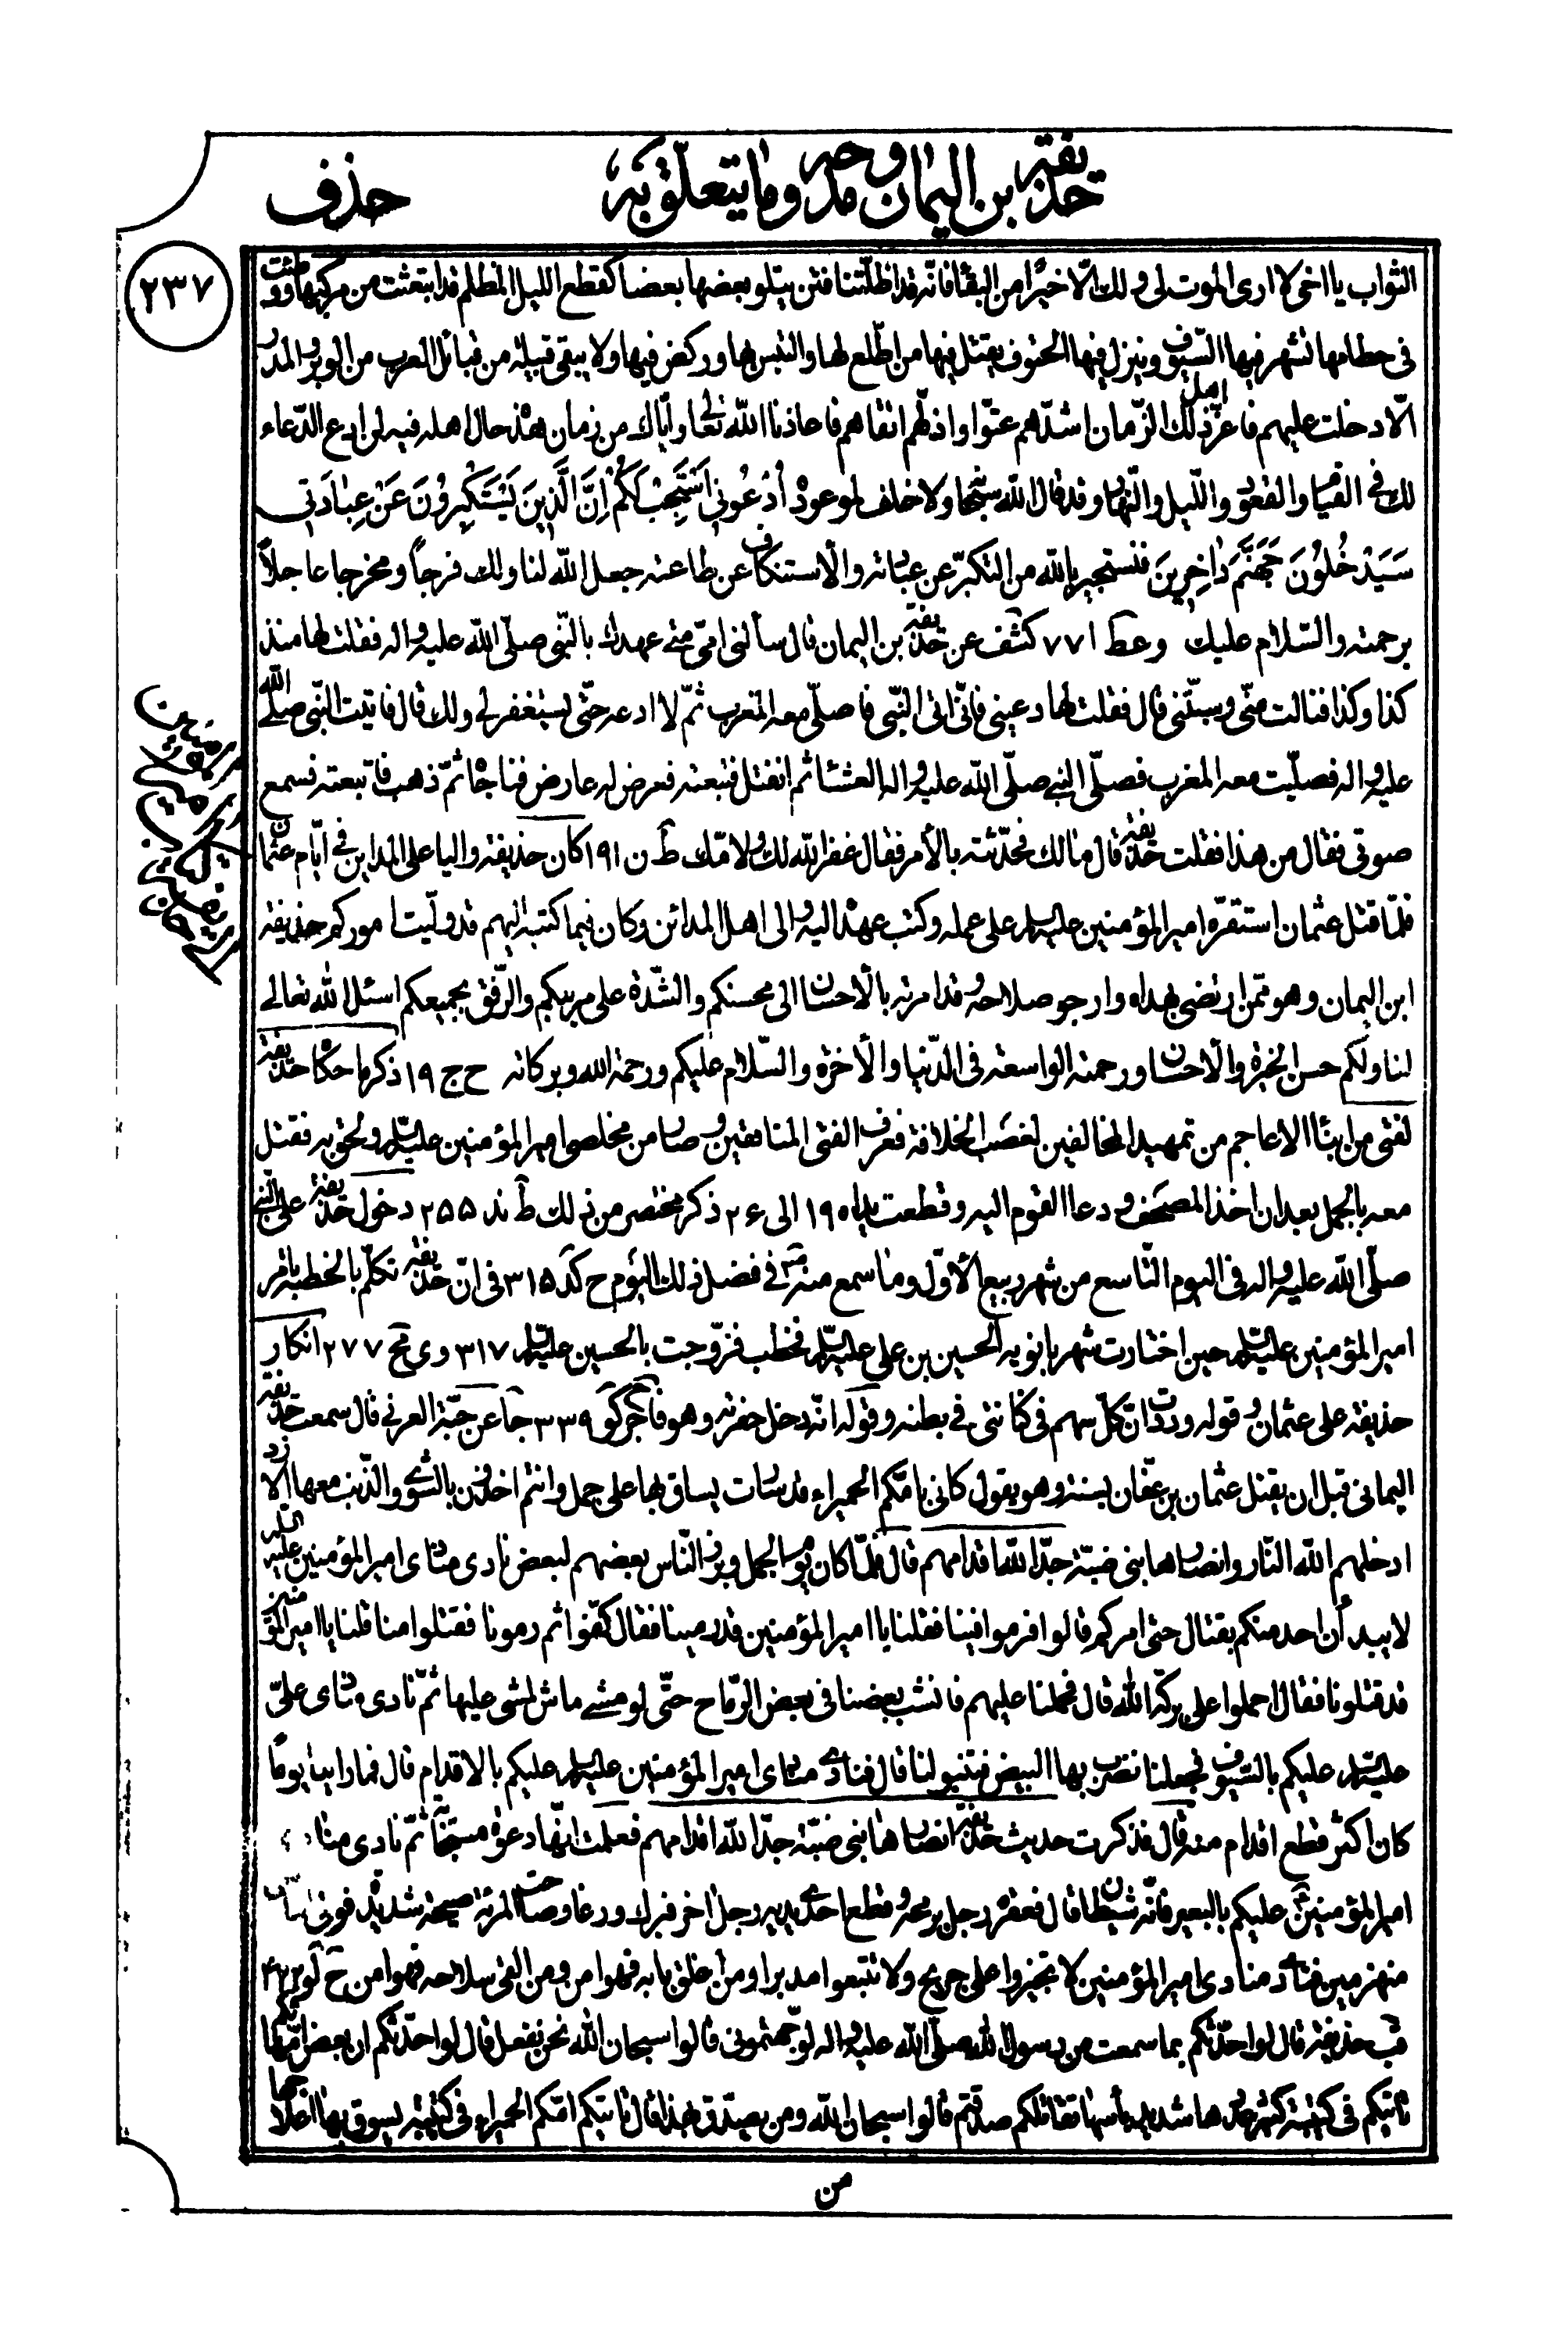 حذيفة بن اليمان ومدحه وما يتعلق به
حذف
٢٣٧
الثواب يا اخى لا ارى الموت لى ولك الّا خيرًا من البقاء فانّه قد اظلّتنا فتن يتلو بعضها بعضا كقطع الليل المظلم قد ابتعثت من مركبها ووطئت
فى حطامها تشهر فيها السّيوف وينزل فيها الحتوف يقتل فيها من اطّلع لها والتبس بها وركض فيها ولا يبقى قبيلة من قبائل العرب من الوبر والمدر
الّا دخلت عليهم فاعزّ اهل ذلك الزّمان اشدّهم عتوّا واذلّهم اتقاهم فاعاذنا الله تعالى وايّاك من زمان هذه حال اهله فيه لن ادع الدّعاء
لك فى القيام والقعود واللّيل والنّهار وقد قال الله سبحانه ولا خلف لموعوده اُدْعُونِي اَسْتَجِبْ لَكُمْ اِنَّ الَّذِينَ يَسْتَكْبِرُونَ عَنْ عِبَادَتِي
سَيَدْخُلُونَ جَهَنَّمَ دَاخِرِينَ فنستجير بالله من التكبّر عن عبادته والاستنكاف عن طاعته جعل الله لنا ولك فرجاً ومخرجا عاجلاً
برحمته والسّلام عليك وعط ٧٧١ كشف عن حذيفة بن اليمان قال سألتنى امّى متى عهدك بالنّبى صلّى الله عليه واله فقلت لها منذ
كذا وكذا فنالت منّى وسبّتنى قال فقلت لها دعينى فانّى اتى النّبى فاصلّى معه المغرب ثمّ لا ادعه حتّى يستغفر لى ولك قال فاتيت النّبى صلّى الله
عليه واله فصلّيت معه المغرب فصلّى النبى صلّى الله عليه واله العشاء ثم انفتل فتبعته فعرض له عارض فناجاه ثمّ ذهب فاتبعته فسمع
صوتى فقال من هذا فقلت حذيفة قال مالك فحدّثته بالأمر فقال غفر الله لك ولامّك ط ن ١٩١ كان حذيفة واليا على المداين فى ايّام عثمان
فلمّا قتل عثمان استقرّه امير المؤمنين عليه السلام على عمله وكتب عهده اليه والى اهل المدائن وكان فيما كتبه اليهم قد ولّيت اموركم حذيفة
ابن اليمان وهو ممّن ارتضى بهداه وارجو صلاحه وقد امرته بالاحسان الى محسنكم والشّدة على مريبكم والرّفق بجميعكم اسئل الله تعالى
لنا ولكم حسن الخيرة والاحسان ورحمته الواسعة فى الدّنيا والآخرة والسّلام عليكم ورحمة الله وبركاته ح ج ١٩ ذكر ما حكاه حذيفة
لفتى من ابناء الاعاجم من تمهيد المخالفين لغصب الخلافة فعرف الفتى المنافقين وصار من مخلصى امير المؤمنين عليه السلام ولحق به فقتل
معه بالجمل بعد ان اخذ المصحف ودعا القوم اليه وقطعت يداه ١٩ الى ٢٦ ذكر مختصر من ذلك ط ند ٢٥٥ دخول حذيفة على النبى
صلّى الله عليه واله فى اليوم التّاسع من شهر ربيع الأوّل وما سمع منه فى فضل ذلك اليوم ح كد ٣١٥ فى انّ حذيفة تكلّم بالخطبة بامر
امير المؤمنين عليه السلام حين اختارت شهربانويه الحسين بن على عليه السلام فخطب فزوّجت بالحسين عليه السلام ٣١٧ وى مح ٢٧٧ انكار
حذيفة على عثمان وقوله وددت انّ كلّ سهم فى كنانتى فى بطنه وقوله انّه دخل حفرته وهو فاجر ح لو ٣٣٩ جا عن حبّة العرنى قال سمعت حذيفة
اليمانى قبل ان يقتل عثمان بن عفّان بسنة وهو يقول كانى بامّكم الحميراء قد سارت يساق بها على جمل وانتم اخذون بالشّوى والذّنب معها الازد
ادخلهم الله النّار وانصارها بنى ضبّة جدّ الله اقدامهم قال فلمّا كان يوم الجمل وبرز النّاس بعضهم لبعض نادى منادى امير المؤمنين عليه السلام
لا يبدأنّ احد منكم بقتال حتى امركم قال فرموا فينا فقلنا يا امير المؤمنين قد رمينا فقال كفّوا ثم رمونا فقتلوا منا قلنا يا امير المؤمنين
قد قتلونا فقال احملوا على بركة الله قال فحملنا عليهم فانشب بعضنا فى بعض الرّماح حتّى لو مشى ماش لمشى عليها ثمّ نادى منادى علىّ
عليه السلام عليكم بالسّيوف فجعلنا نضرب بها البيض فتنبو لنا قال فنادى منادى امير المؤمنين عليه السلام عليكم بالاقدام قال فما راينا يوماً
كان اكثر قطع اقدام منه قال فذكرت حديث حذيفة انصارها بنى ضبّة جدّ الله اقدامهم فعلمت انّها دعوة مستجابة ثمّ نادى منادى
امير المؤمنين عليكم بالبعير فانّه شيطان قال فعقره رجل برمحه وقطع احدى يديه رجل اخر فبرك ورغا وصاحت المرئة صيحة شديدة فولّى النّاس
منهزمين فنادى منادى امير المؤمنين لا تجيزوا على جريح ولا تتبعوا مدبرا ومن اغلق بابه فهو امن ومن القى سلاحه فهو امن ح لو
قب حذيفة قال لو احدّثكم بما سمعت من رسول الله صلّى الله عليه واله لوجمتمونى قالوا سبحان الله نحن نفعل قال لو احدّثكم ان بعض امّهاتكم
تاتيكم فى كتيبة كثير عددها شديد بأسها تقاتلكم صدقتم قالوا سبحان الله ومن يصدّق بهذا قال تاتيكم امّكم الحميراء فى كتيبة يسوق بها اعلاجها
من